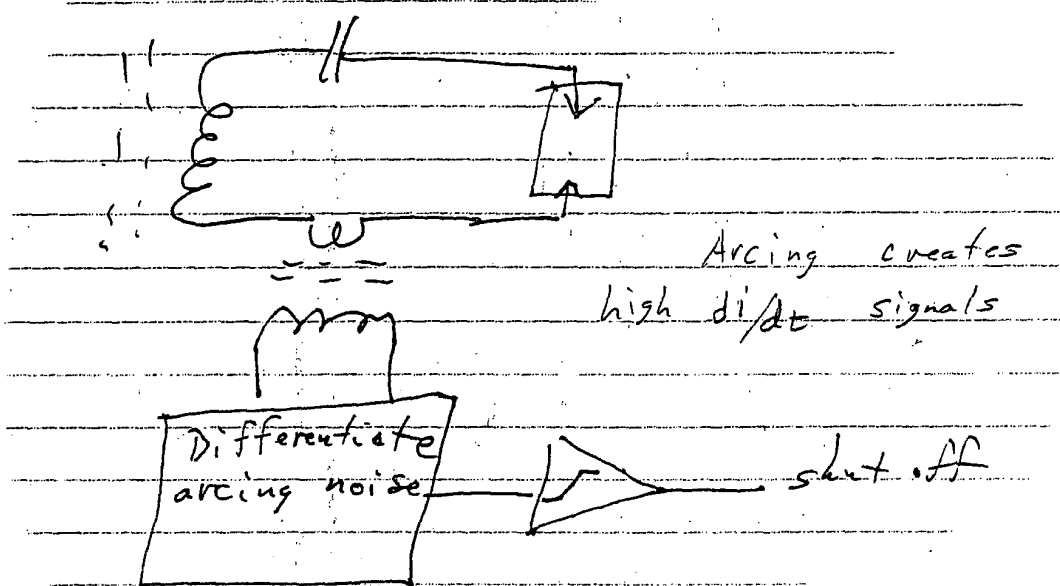 Arcing creates
high di/dt signals
Differentiate
arcing noise
shut off